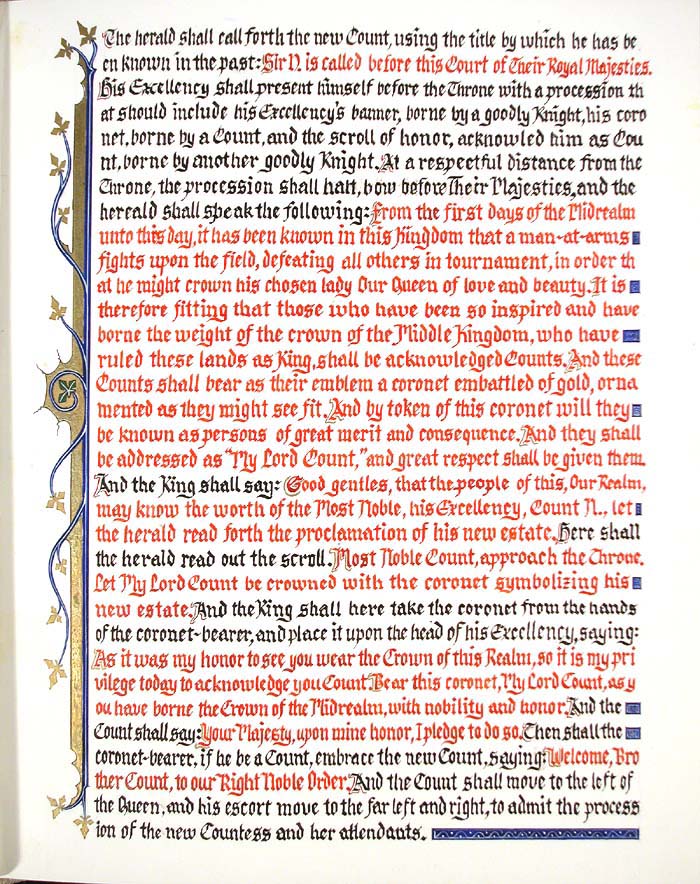 The herald shall call forth the new Count, using the title by which he has be
en known in the past: Sir N. is called before this Court of Their Royal Majesties.
His Excellency shall present himself before the Throne with a procession th
at should include his Excellency's banner, borne by a goodly Knight, his coro
net, borne by a Count, and the scroll of honor, acknowled him as Cou
nt, borne by another goodly Knight. At a respectful distance from the
Throne, the procession shall halt, bow before Their Majesties, and the
hereald shall speak the following: From the first days of the Midrealm
unto this day, it has been known in this Kingdom that a man-at-arms
fights upon the field, defeating all others in tournament, in order th
at he might crown his chosen lady Our Queen of love and beauty. It is
therefore fitting that those who have been so inspired and have
borne the weight of the crown of the Middle Kingdom, who have
ruled these lands as King, shall be acknowledged Counts. And these
Counts shall bear as their emblem a coronet embattled of gold, orna
mented as they might see fit. And by token of this coronet will they
be known as persons of great merit and consequence. And they shall
be addressed as "My Lord Count," and great respect shall be given them.
And the King shall say: Good gentles, that the people of this, Our Realm,
may know the worth of the Most Noble, his Excellency, Count N., let
the herald read forth the proclamation of his new estate. Here shall
the herald read out the scroll. Most Noble Count, approach the Throne.
Let My Lord Count be crowned with the coronet symbolizing his
new estate. And the King shall here take the coronet from the hands
of the coronet-bearer, and place it upon the head of his Excellency, saying:
As it was my honor to see you wear the Crown of this Realm, so it is my pri
vilege today to acknowledge you Count. Bear this coronet, My Lord Count, as y
ou have borne the Crown of the Midrealm, with nobility and honor. And the
Count shall say: Your Majesty, upon mine honor, I pledge to do so. Then shall the
coronet-bearer, if he be a Count, embrace the new Count, saying: Welcome, Bro
ther Count, to our Right Noble Order. And the Count shall move to the left of
the Queen, and his escort move to the far left and right, to admit the process
ion of the new Countess and her attendants.